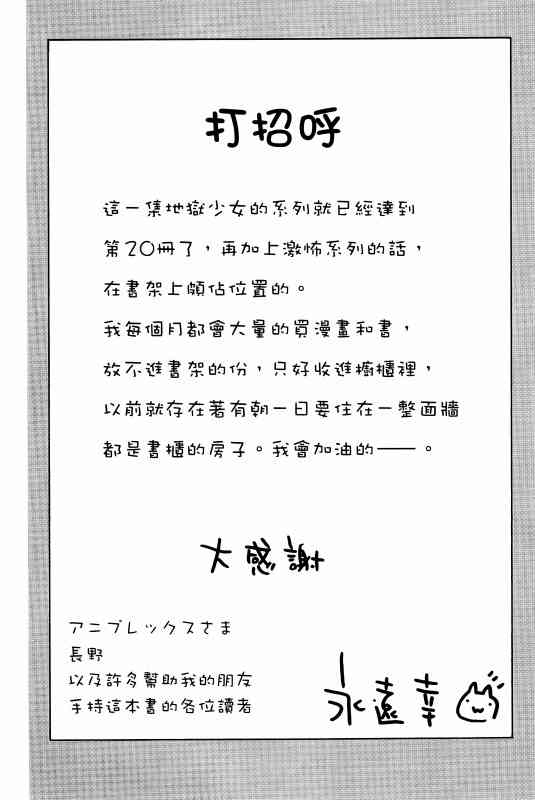 打招呼
這一集地獄少女的系列就已經達到
第20冊了，再加上激怖系列的話，
在書架上頗佔位置的。
我每個月都會大量的買漫畫和書，
放不進書架的份，只好收進櫥櫃裡，
以前就存在著有朝一日要住在一整面牆
都是書櫃的房子。我會加油的——。
大感謝
アニプレックスさま
長野
以及許多幫助我的朋友
手持這本書的各位讀者
永遠幸